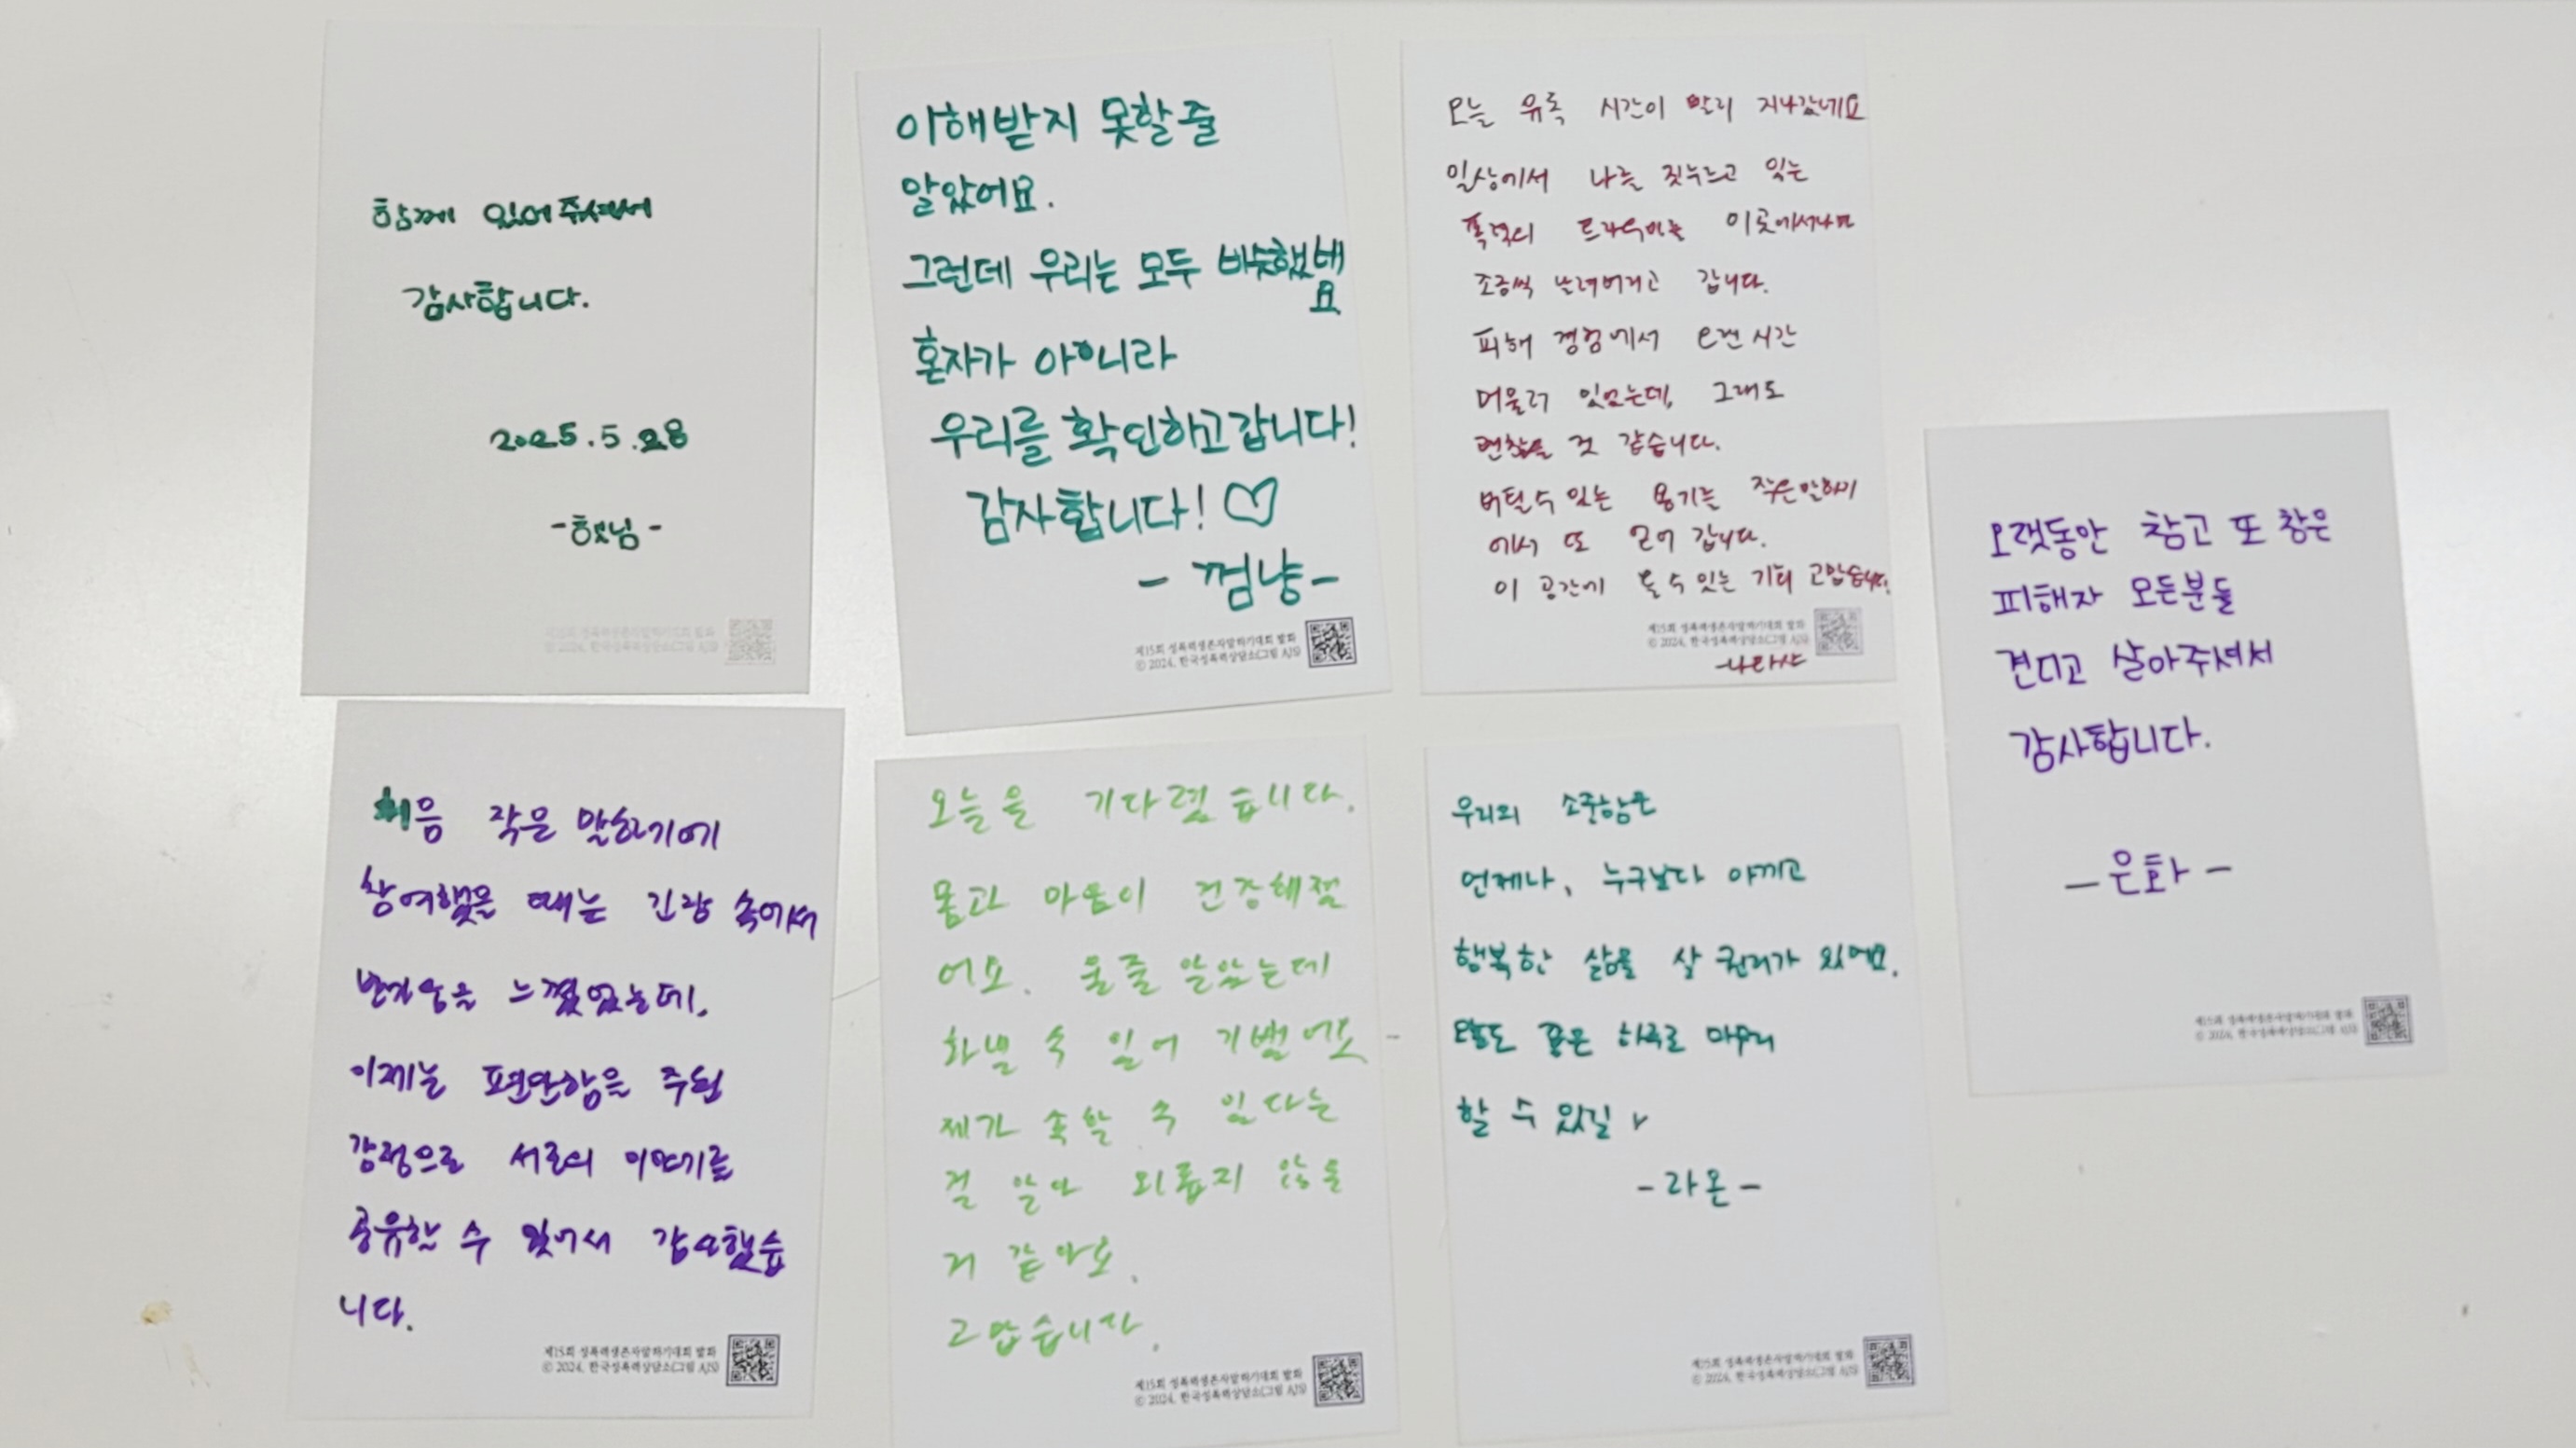 함께 있어주셔서
감사합니다.
2025.5.28
-햇님-
이해받지 못할줄
알았어요.
그런데 우리는 모두 비슷했네
요
혼자가 아니라
우리를 확인하고갑니다!
감사합니다! ♡
- 껌냥-
제15회 성폭력생존자말하기대회 발화
© 2024. 한국성폭력상담소(그림 AJS)
오늘 유독 시간이 빨리 지나갔네요
일상에서 나를 짓누르고 있는
폭력의 트라우마는 이곳에서나마
조금씩 날려버리고 갑니다.
피해 경험에서 오랜 시간
머물러 있었는데, 그래도
괜찮을 것 같습니다.
버틸 수 있는 용기는 작은말하기
에서 또 얻어 갑니다.
이 공간에 올 수 있는 기회 고맙습니다.
제15회 성폭력생존자말하기대회 발화
© 2024. 한국성폭력상담소(그림 AJS)
-나타샤
오랫동안 참고 또 참은
피해자 모든분들
견디고 살아주셔서
감사합니다.
- 은화 -
제15회 성폭력생존자말하기대회 발화
© 2024. 한국성폭력상담소(그림 AJS)
처음 작은 말하기에
참여했을 때는 긴장 속에서
반가움을 느꼈었는데,
이제는 편안함을 주된
감정으로 서로의 이야기를
공유할 수 있어서 감사했습
니다.
제15회 성폭력생존자말하기대회 발화
© 2024. 한국성폭력상담소(그림 AJS)
오늘을 기다렸습니다.
몸과 마음이 건강해졌
어요. 울줄 알았는데
화낼 수 있어 기뻤어요
제가 속할 수 있다는
걸 알아 외롭지 않을
거 같아요.
고맙습니다.
제15회 성폭력생존자말하기대회 발화
© 2024. 한국성폭력상담소(그림 AJS)
우리의 소중함은
언제나, 누구보다 아끼고
행복한 삶을 살 권리가 있어요.
오늘도 좋은 하루로 마무리
할 수 있길
- 라온 -
제15회 성폭력생존자말하기대회 발화
© 2024. 한국성폭력상담소(그림 AJS)